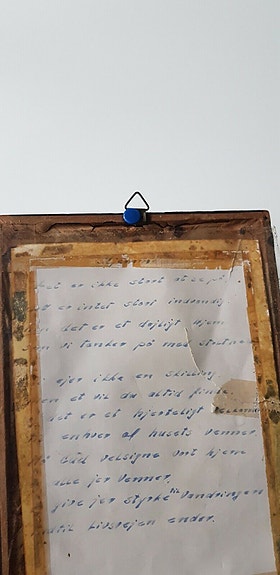 det er ikke stort at se på,
er intet stort indvendig
det er et dejligt hjem
vi tænker på med
ejer ikke en skilling
et vil du altid finde.
det er et hjerteligt
enhver af husets venner
Gud velsigne vort hjem
alle jer venner,
give jer styrke til vandringen
indtil livsvejen ender.